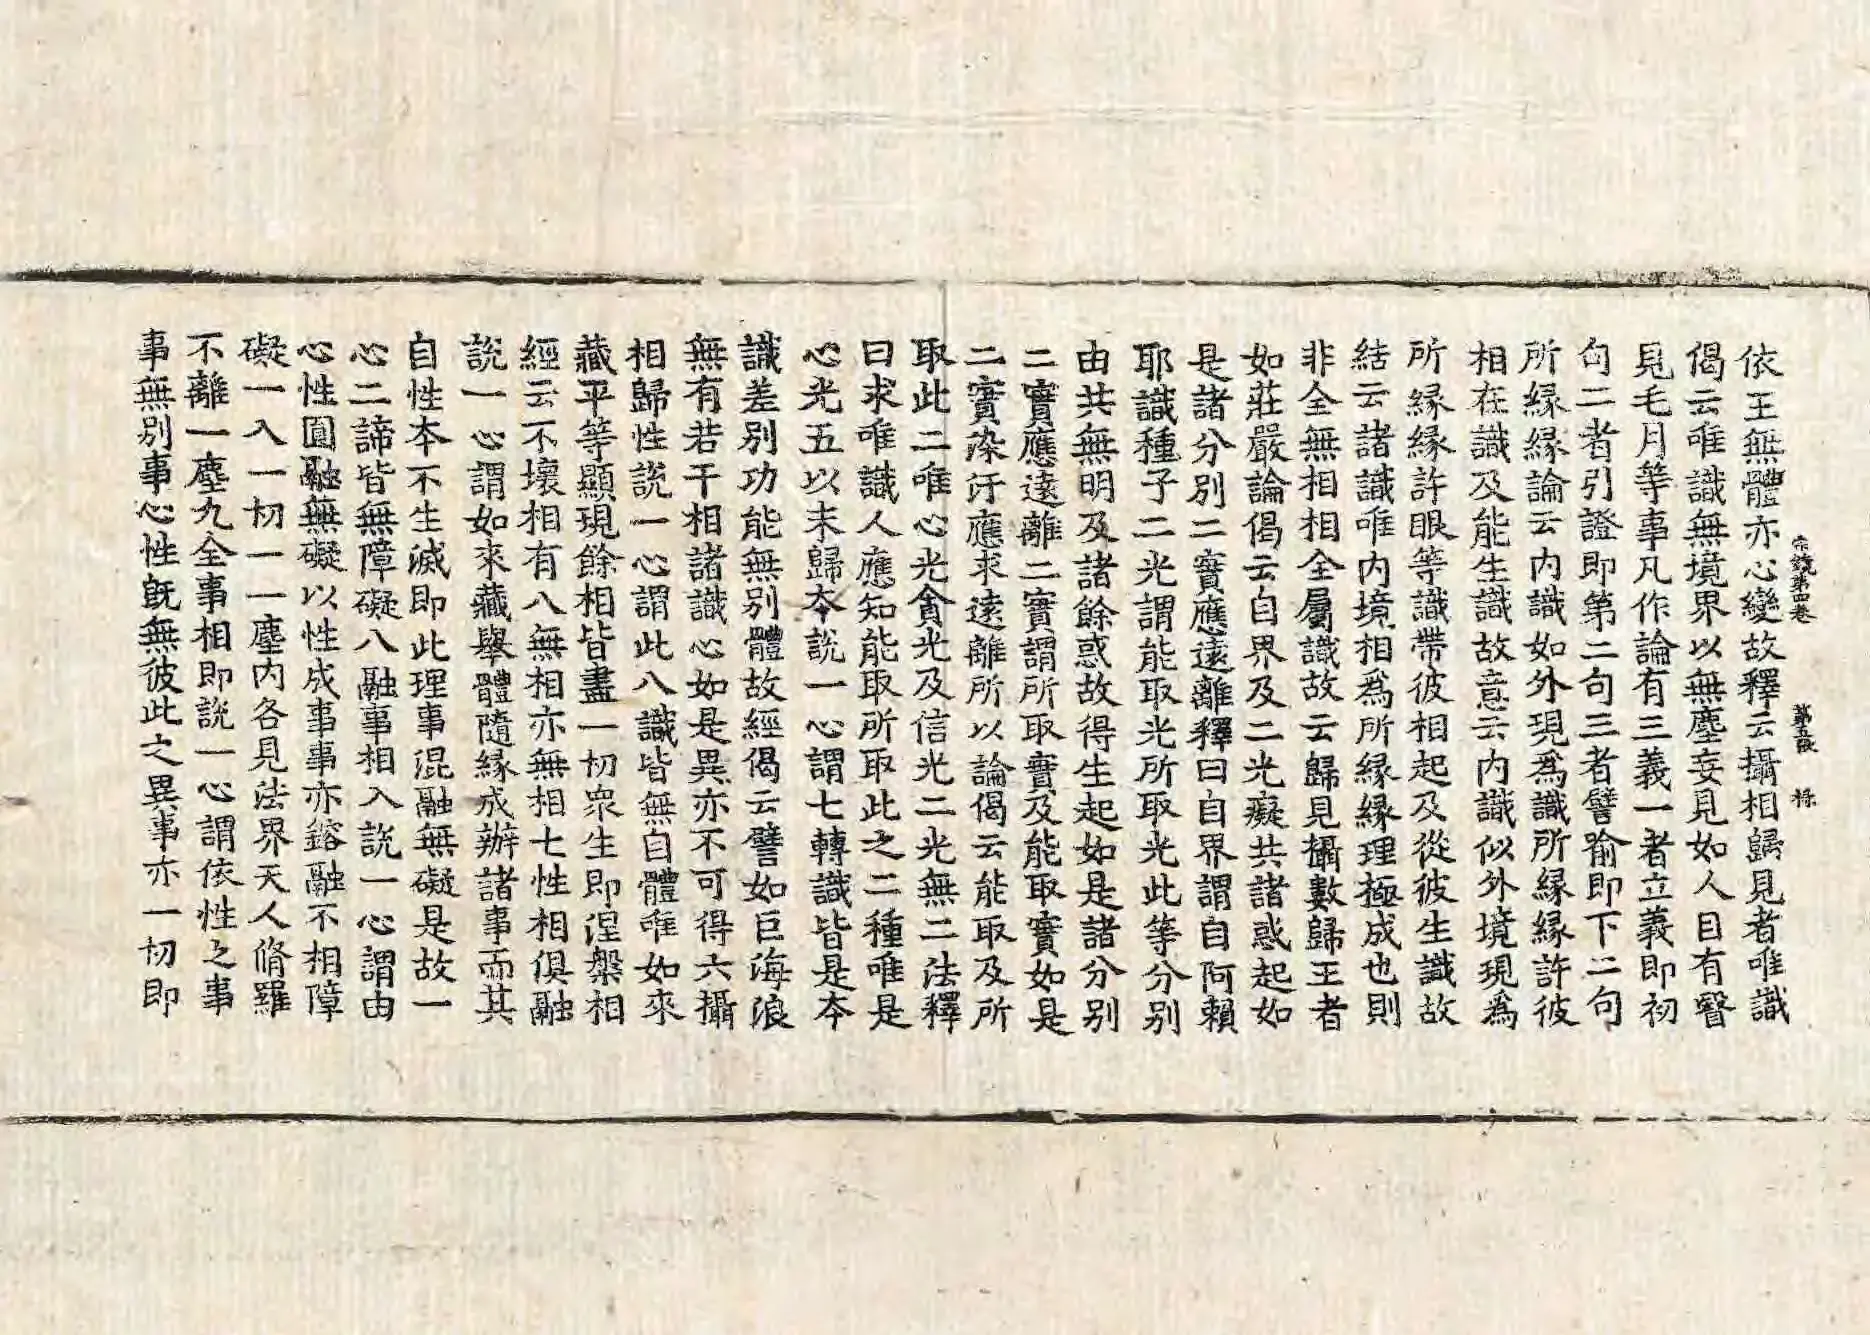 宗鏡第四卷 第五張 祿
依王無體亦心變故釋云攝相歸見者唯識
偈云唯識無境界以無塵妄見如人目有瞖
見毛月等事凡作論有三義一者立義即初
句二者引證即第二句三者譬喻即下二句
所緣緣論云內識如外現為識所緣緣許彼
相在識及能生識故意云內識似外境現為
所緣緣許眼等識帶彼相起及從彼生識故
結云諸識唯內境相為所緣緣理極成也則
非全無相相全屬識故云歸見攝數歸王者
如莊嚴論偈云自界及二光癡共諸惑起如
是諸分別二實應遠離釋曰自界謂自阿賴
耶識種子二光謂能取光所取光此等分別
由共無明及諸餘惑故得生起如是諸分別
二實應遠離二實謂所取實及能取實如是
二實染汙應求遠離所以論偈云能取及所
取此二唯心光貪光及信光二光無二法釋
曰求唯識人應知能取所取此之二種唯是
心光五以末歸夲說一心謂七轉識皆是夲
識差別功能無別體故經偈云譬如巨海浪
無有若干相諸識心如是異亦不可得六攝
相歸性說一心謂此八識皆無自體唯如來
藏平等顯現餘相皆盡一切衆生即涅槃相
經云不壞相有八無相亦無相七性相俱融
說一心謂如來藏舉體隨緣成辦諸事而其
自性夲不生滅即此理事混融無礙是故一
心二諦皆無障礙八融事相入說一心謂由
心性圓融無礙以性成事事亦鎔融不相障
礙一入一切一一塵內各見法界天人脩羅
不離一塵九全事相即說一心謂依性之事
事無別事心性旣無彼此之異事亦一切即